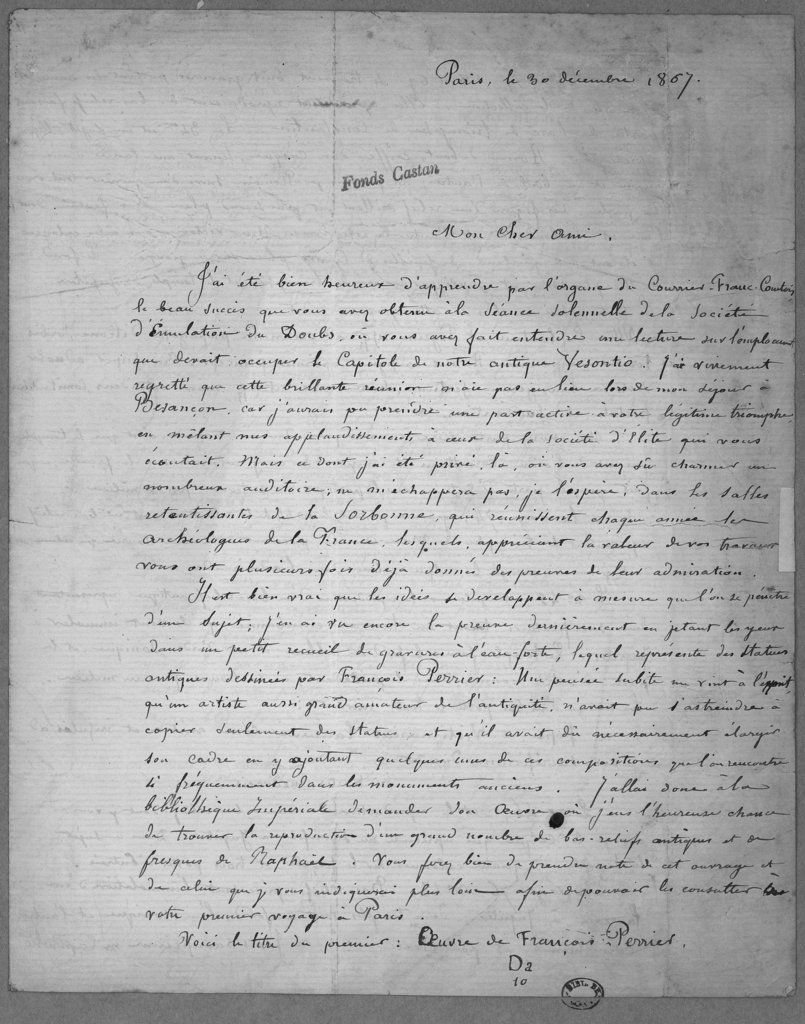 Paris, le 30 décembre 1867.
Fonds Castan
Mon Cher Ami,
J'ai été bien heureux d'apprendre par l'organe du Courrier-Franc-Comtois
le beau succès que vous avez obtenu à la Séance Solennelle de la Société
d'Émulation du Doubs, où vous avez fait entendre une lecture sur l'emplacement
que devait occuper le Capitole de notre antique Vesontio. J'ai vivement
regretté que cette brillante réunion n'aie pas eu lieu lors de mon séjour à
Besançon, car j'aurais pu prendre une part active à votre légitime triomphe,
en mêlant mes applaudissements à ceux de la société d'Elite qui vous
écoutait. Mais ce dont j'ai été privé, là, où vous avez sû charmer un
nombreux auditoire, ne m'échappera pas, je l'espère, dans les salles
retentissantes de la Sorbonne, qui réunissent chaque année les
archéologues de la France, lesquels, appréciant la valeur de vos travaux
vous ont plusieurs fois déjà donnés des preuves de leur admiration.
Il est bien vrai que les idées se developpent à mesure que l'on se pénètre
d'un sujet; j'en ai vu encore la preuve dernièrement en jetant les yeux
dans un petit recueil de gravures à l'eau-forte, lequel represente des statues
antiques dessinées par François Perrier: Une pensée subite me vint à l'esprit,
qu'un artiste aussi grand amateur de l'antiquité, n'avait pu s'astreindre à
copier seulement des statues et qu'il avait dû nécessairement élargir
son cadre en y ajoutant quelques unes de ces compositions que l'on rencontre
si fréquemment dans les monuments anciens. J'allai donc à la
bibliothèque Impériale demander son Œuvre où j'eus l'heureuse chance
de trouver la reproduction d'un grand nombre de bas-reliefs antiques et de
fresques de Raphaël. Vous ferez bien de prendre note de cet ouvrage et
de celui que je vous indiquerai plus loin afin de pouvoir les consulter
votre premier voyage à Paris.
Voici le titre du premier: Œuvre de François Perrier.
Da
10
BIBL. DE